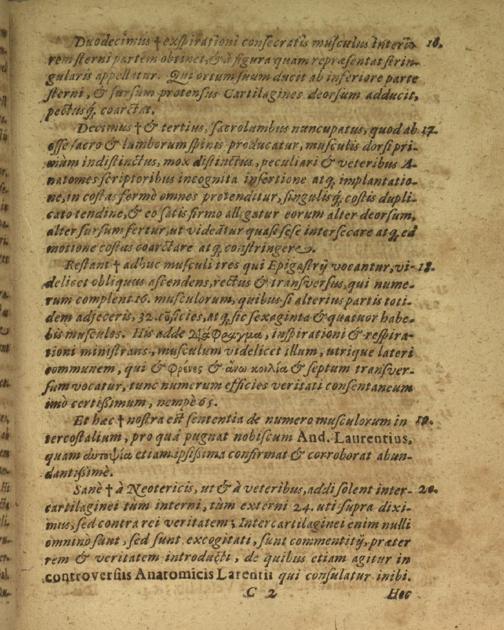 Duodecimus † exspirationi consecratis musculus interio- 16.
rem sterni partem obtinet, & à figura quam repræsentat strin-
gularis appellatur. Qui ortum suum ducit ab inferiore parte
sterni, & sursum protensus Cartilagines deorsum adducit,
pectusq́. coarctat.
Decimus † & tertius, sacrolumbus nuncupatus, quod ab 17.
osse sacro & lumborum spinis producatur, musculis dorsi pri-
mum indistinctus, mox distinctus, peculiari & veteribus A-
natomes scriptoribus incognita insertione atq́, implantatio-
ne, in costas fermè omnes protenditur, singulisq́, costis dupli-
cato tendine, & eo satis firmo alligatur eorum alter deorsum,
alter sursum fertur, ut videatur quasi sese intersecare atq́, ea
motione costas coarctare atq́, constringere.
Restant † adhuc musculi tres qui Epigastrij vocantur, vi- 18.
delicet obliquus ascendens, rectus & transversus, qui nume-
rum complent 16. musculorum, quibus si alterius partis toti-
dem adjeceris, 32. efficies, atq́, sic sexaginta & quatuor habe-
bis musculos. His adde διάφραγμα, inspirationi & respira-
tioni ministrans, musculum videlicet illum, utrique lateri
communem, qui & φρένες & ἄνω κοιλία & septum transver-
sum vocatur, tunc numerum efficies veritati consentaneum
imò certissimum, nempè 65.
Et hæc † nostra est sententia de numero musculorum in 19.
tercostalium, pro quâ pugnat nobiscum And. Laurentius,
quam αυτοψία etiam ipsissima confirmat & corroborat abun-
dantissimè.
Sanè † à Neotericis, ut & à veteribus, addi solent inter- 20.
cartilaginei tùm interni, tùm externi 24. uti supra dixi-
mus, sed contra rei veritatem; Intercartilaginei enim nulli
omninò sunt, sed sunt excogitati, sunt commentitij, præter
rem & veritatem introducti, de quibus etiam agitur in
controversiis Anatomicis Larentii qui consulatur inibi.
C 2 Hoc